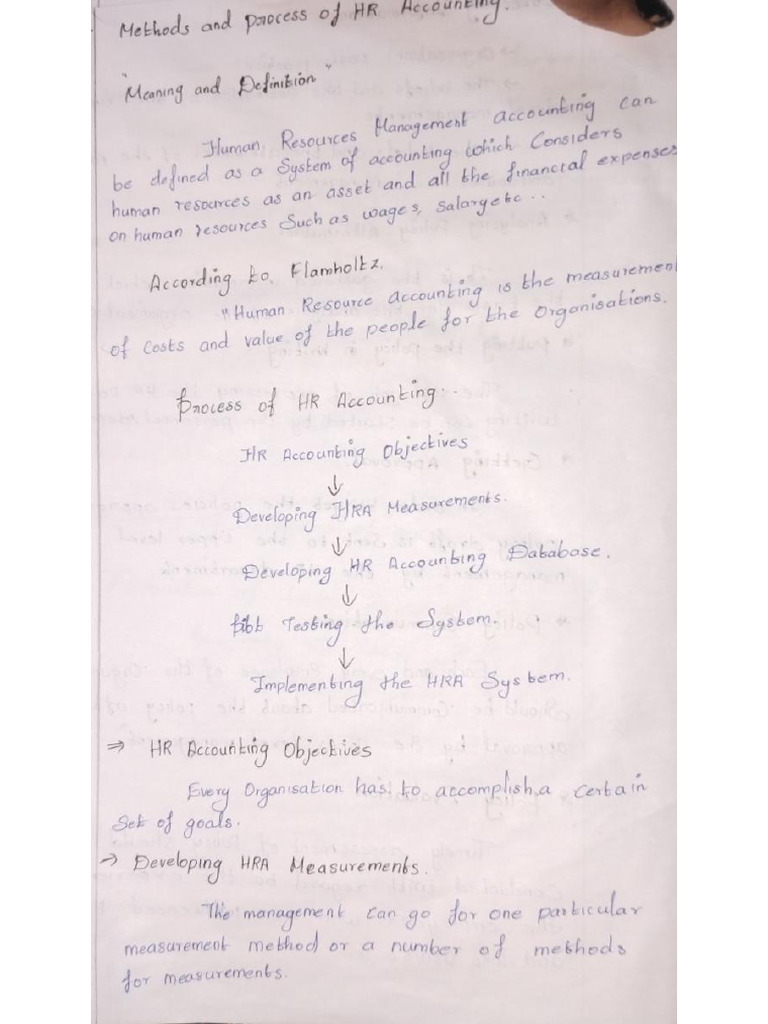 Methods and process of HR Accounting.
"Meaning and Definition"
Human Resources Management accounting can
be defined as a System of accounting which Considers
human resources as an asset and all the financial expenses
on human resources Such as wages, salary etc..
According to, Flamholtz.
"Human Resource accounting is the measurement
of costs and value of the people for the Organisations.
Process of HR Accounting..
HR Accounting Objectives
↓
Developing HRA Measurements.
↓
Developing HR Accounting Database.
↓
Testing the System.
↓
Implementing the HRA System.
⇒ HR Accounting Objectives
Every Organisation has to accomplish a certain
Set of goals.
→ Developing HRA Measurements.
The management can go for one particular
measurement method or a number of methods
for measurements.